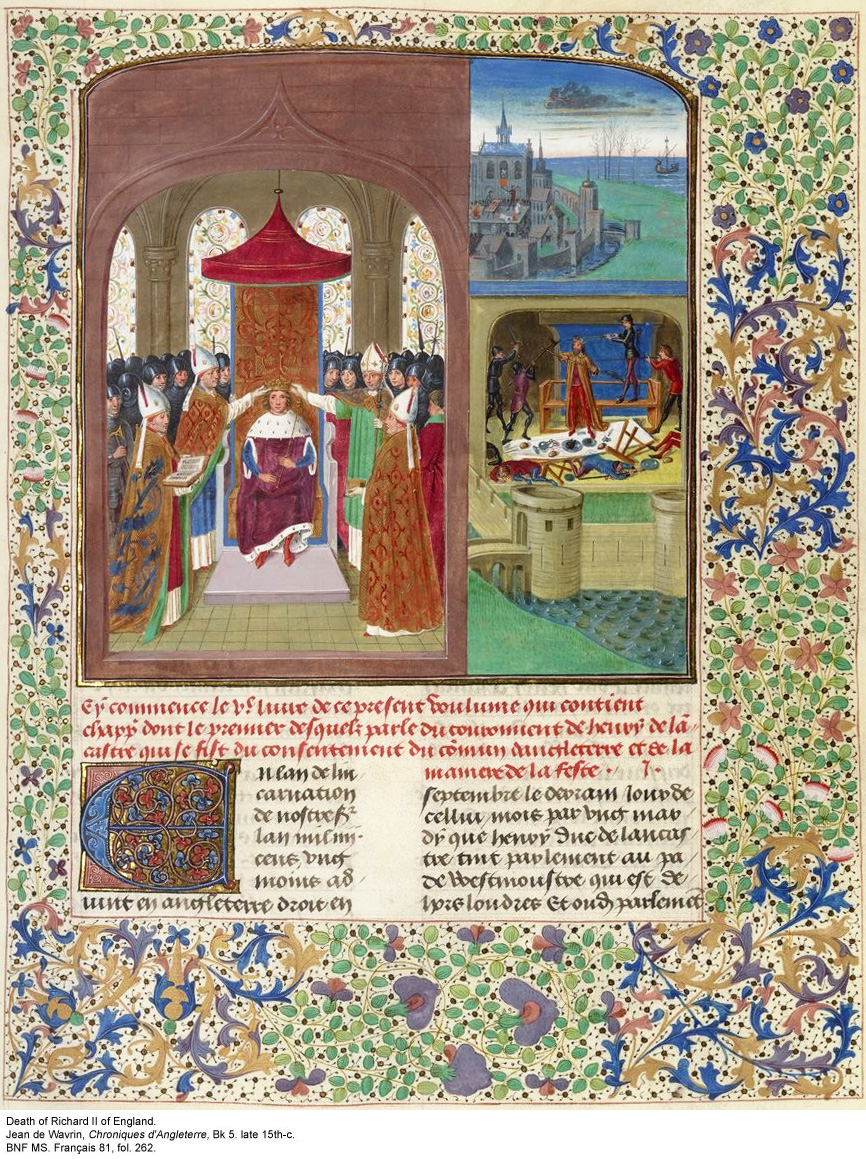 Cy commence le v.e liure de ce present voulume qui contient
chapp.s dont le premier desquelz parle du couronment de henry de la
castre qui se fist du consentement du cōmun dangleterre et de la
maniere de la feste. j.
En lan de lin
carnation
de nostre s.r
lan mil iiij
cens vng
moins ad
uint en angleterre droit en
septembre le derrain Jour de
cellui mois par vng mar
dy que henry duc de lancas
tre tint parlement au pa
de Westmoustre qui est de
hors londres Et oudit parlement
Death of Richard II of England.
Jean de Wavrin, Chroniques d'Angleterre, Bk 5. late 15th-c.
BNF MS. Français 81, fol. 262.